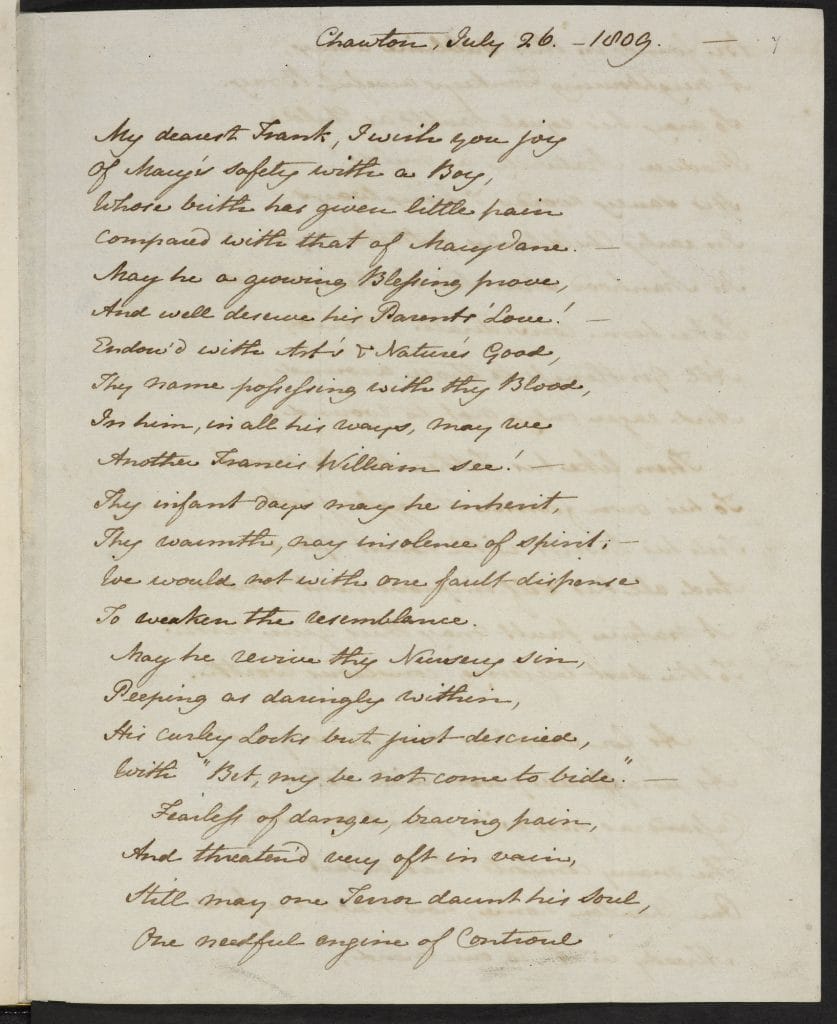 Chawton, July 26. – 1809. –
My dearest Frank, I wish you joy
Of Mary's safety with a Boy,
Whose birth has given little pain
Compared with that of Mary Jane. –
May he a growing Blessing prove,
And well deserve his Parents' Love! –
Endow'd with Art's & Nature's Good,
Thy name possessing with thy Blood,
In him, in all his ways, may we
Another Francis William see! –
Thy infant days may he inherit,
Thy warmth, nay insolence of spirit; –
We would not with one fault dispense
To weaken the resemblance.
May he revive thy Nursery sin,
Peeping as daringly within,
His curley Locks but just descried,
With "Bet, my be not come to bide." –
Fearless of danger, braving pain,
And threaten'd very oft in vain,
Still may one Terror daunt his Soul,
One needful engine of Controul